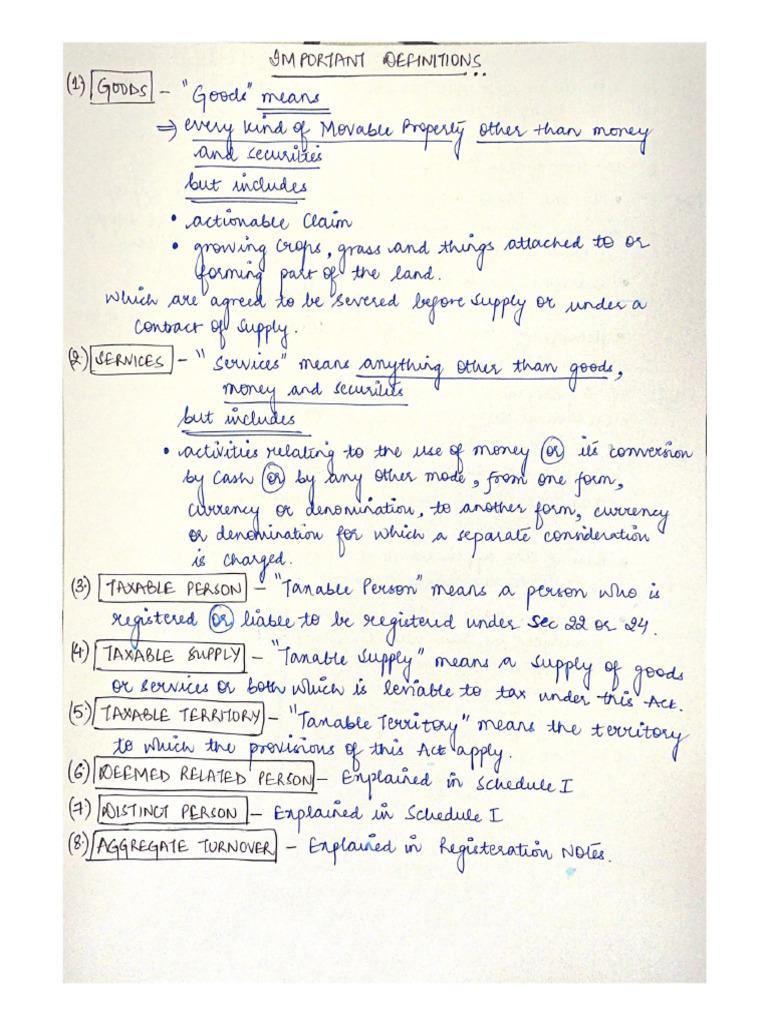 IMPORTANT DEFINITIONS..
(1) GOODS - "Goods" means
⇒ every kind of Movable Property other than money
and securities
but includes
• actionable Claim
• growing Crops, grass and things attached to or
forming part of the land.
which are agreed to be severed before supply or under a
contract of supply.
(2) SERVICES - "Services" means anything other than goods,
money and securities
but includes
• activities relating to the use of money or its conversion
by cash or by any other mode, from one form,
currency or denomination, to another form, currency
or denomination for which a separate consideration
is charged.
(3) TAXABLE PERSON - "Taxable Person" means a person who is
registered or liable to be registered under Sec 22 or 24.
(4) TAXABLE SUPPLY - "Taxable Supply" means a supply of goods
or services or both which is leviable to tax under this Act.
(5) TAXABLE TERRITORY - "Taxable Territory" means the territory
to which the provisions of this Act apply.
(6) DEEMED RELATED PERSON - Explained in Schedule I
(7) DISTINCT PERSON - Explained in Schedule I
(8) AGGREGATE TURNOVER - Explained in Registeration Notes.